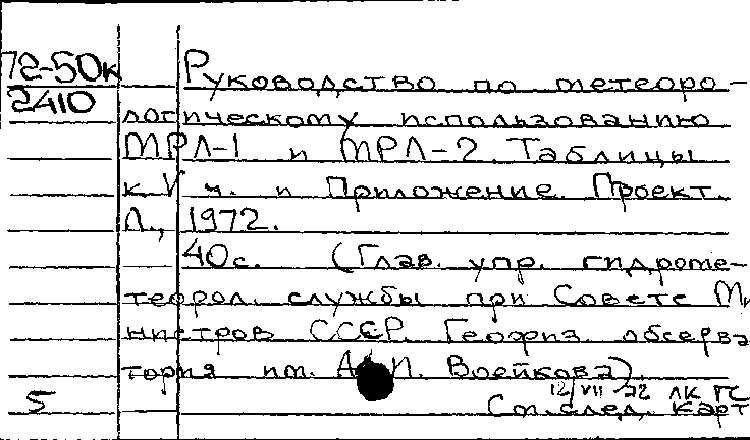 72-50к Руководство по метеоро-
2410 логическому использованию
МРЛ-1 и МРЛ-2. Таблицы
к V ч. и Приложение. Проект.
Л., 1972.
40с. (Глав. упр. гидроме-
теорол. службы при Совете Ми
нистров СССР. Геофиз. обсерва
тория им. А. И. Воейкова).
12/VII 72 ЛК ГС
5 См. след. карт